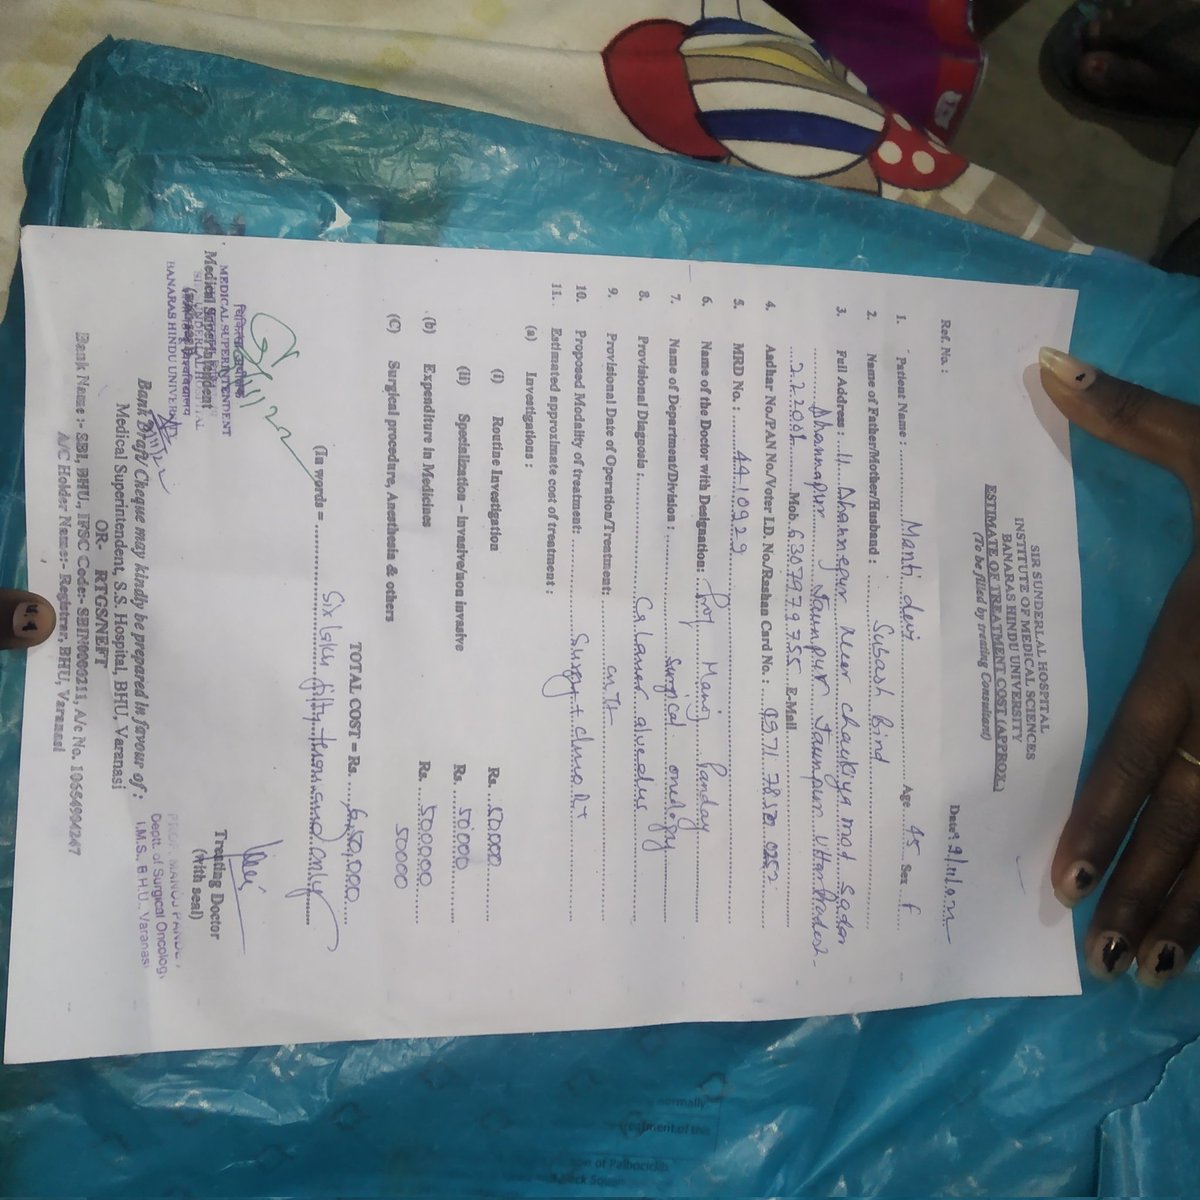 SIR SUNDERLAL HOSPITAL
INSTITUTE OF MEDICAL SCIENCES
BANARAS HINDU UNIVERSITY
ESTIMATE OF TREATMENT COST (APPROX.)
(To be filled by treating Consultant)
Ref. No. : Date:
1. Patient Name : Manti devi Age 45 Sex F
2. Name of Father/Mother/Husband : Subash Bind
3. Full Address : Near Chaukiya
Jaunpur Jaunpur Uttar Pradesh
Mob. 6307979755 E-Mail
4. Aadhar No/PAN No/Voter I.D. No/Rashan Card No. :
5. MRD No. : 4410929
6. Name of the Doctor with Designation: Prof Manoj Panday
7. Name of Department/Division : Surgical oncology
8. Provisional Diagnosis : Ca
9. Provisional Date of Operation/Treatment:
10. Proposed Modality of treatment: Surgery +
11. Estimated approximate cost of treatment :
(a) Investigations :
(i) Routine Investigation Rs. 50,000
(ii) Specialization – invasive/non invasive Rs 50,000
(b) Expenditure in Medicines Rs. 500,000
(C) Surgical procedure, Anesthesia & others 50000
TOTAL COST = Rs. 6,50,000
(In words = Six lakh fifty thousand only
Treating Doctor
(With seal)
PROF. MANOJ PANDEY
Deptt. of Surgical Oncology
I.M.S., B.H.U., Varanasi
MEDICAL SUPERINTENDENT
Medical Superintendent
BANARAS HINDU UNIVERSITY
Bank Draft/ Cheque may kindly be prepared in favour of :
Medical Superintendent, S.S. Hospital, BHU, Varanasi
OR- RTGS/NEFT
Bank Name :- SBI, BHU., IFSC Code:- SBIN0000211, A/c No. 10654994247
A/C Holder Name:- Registrar, BHU, Varanasi
normally
treatment of the
of Palbociclib